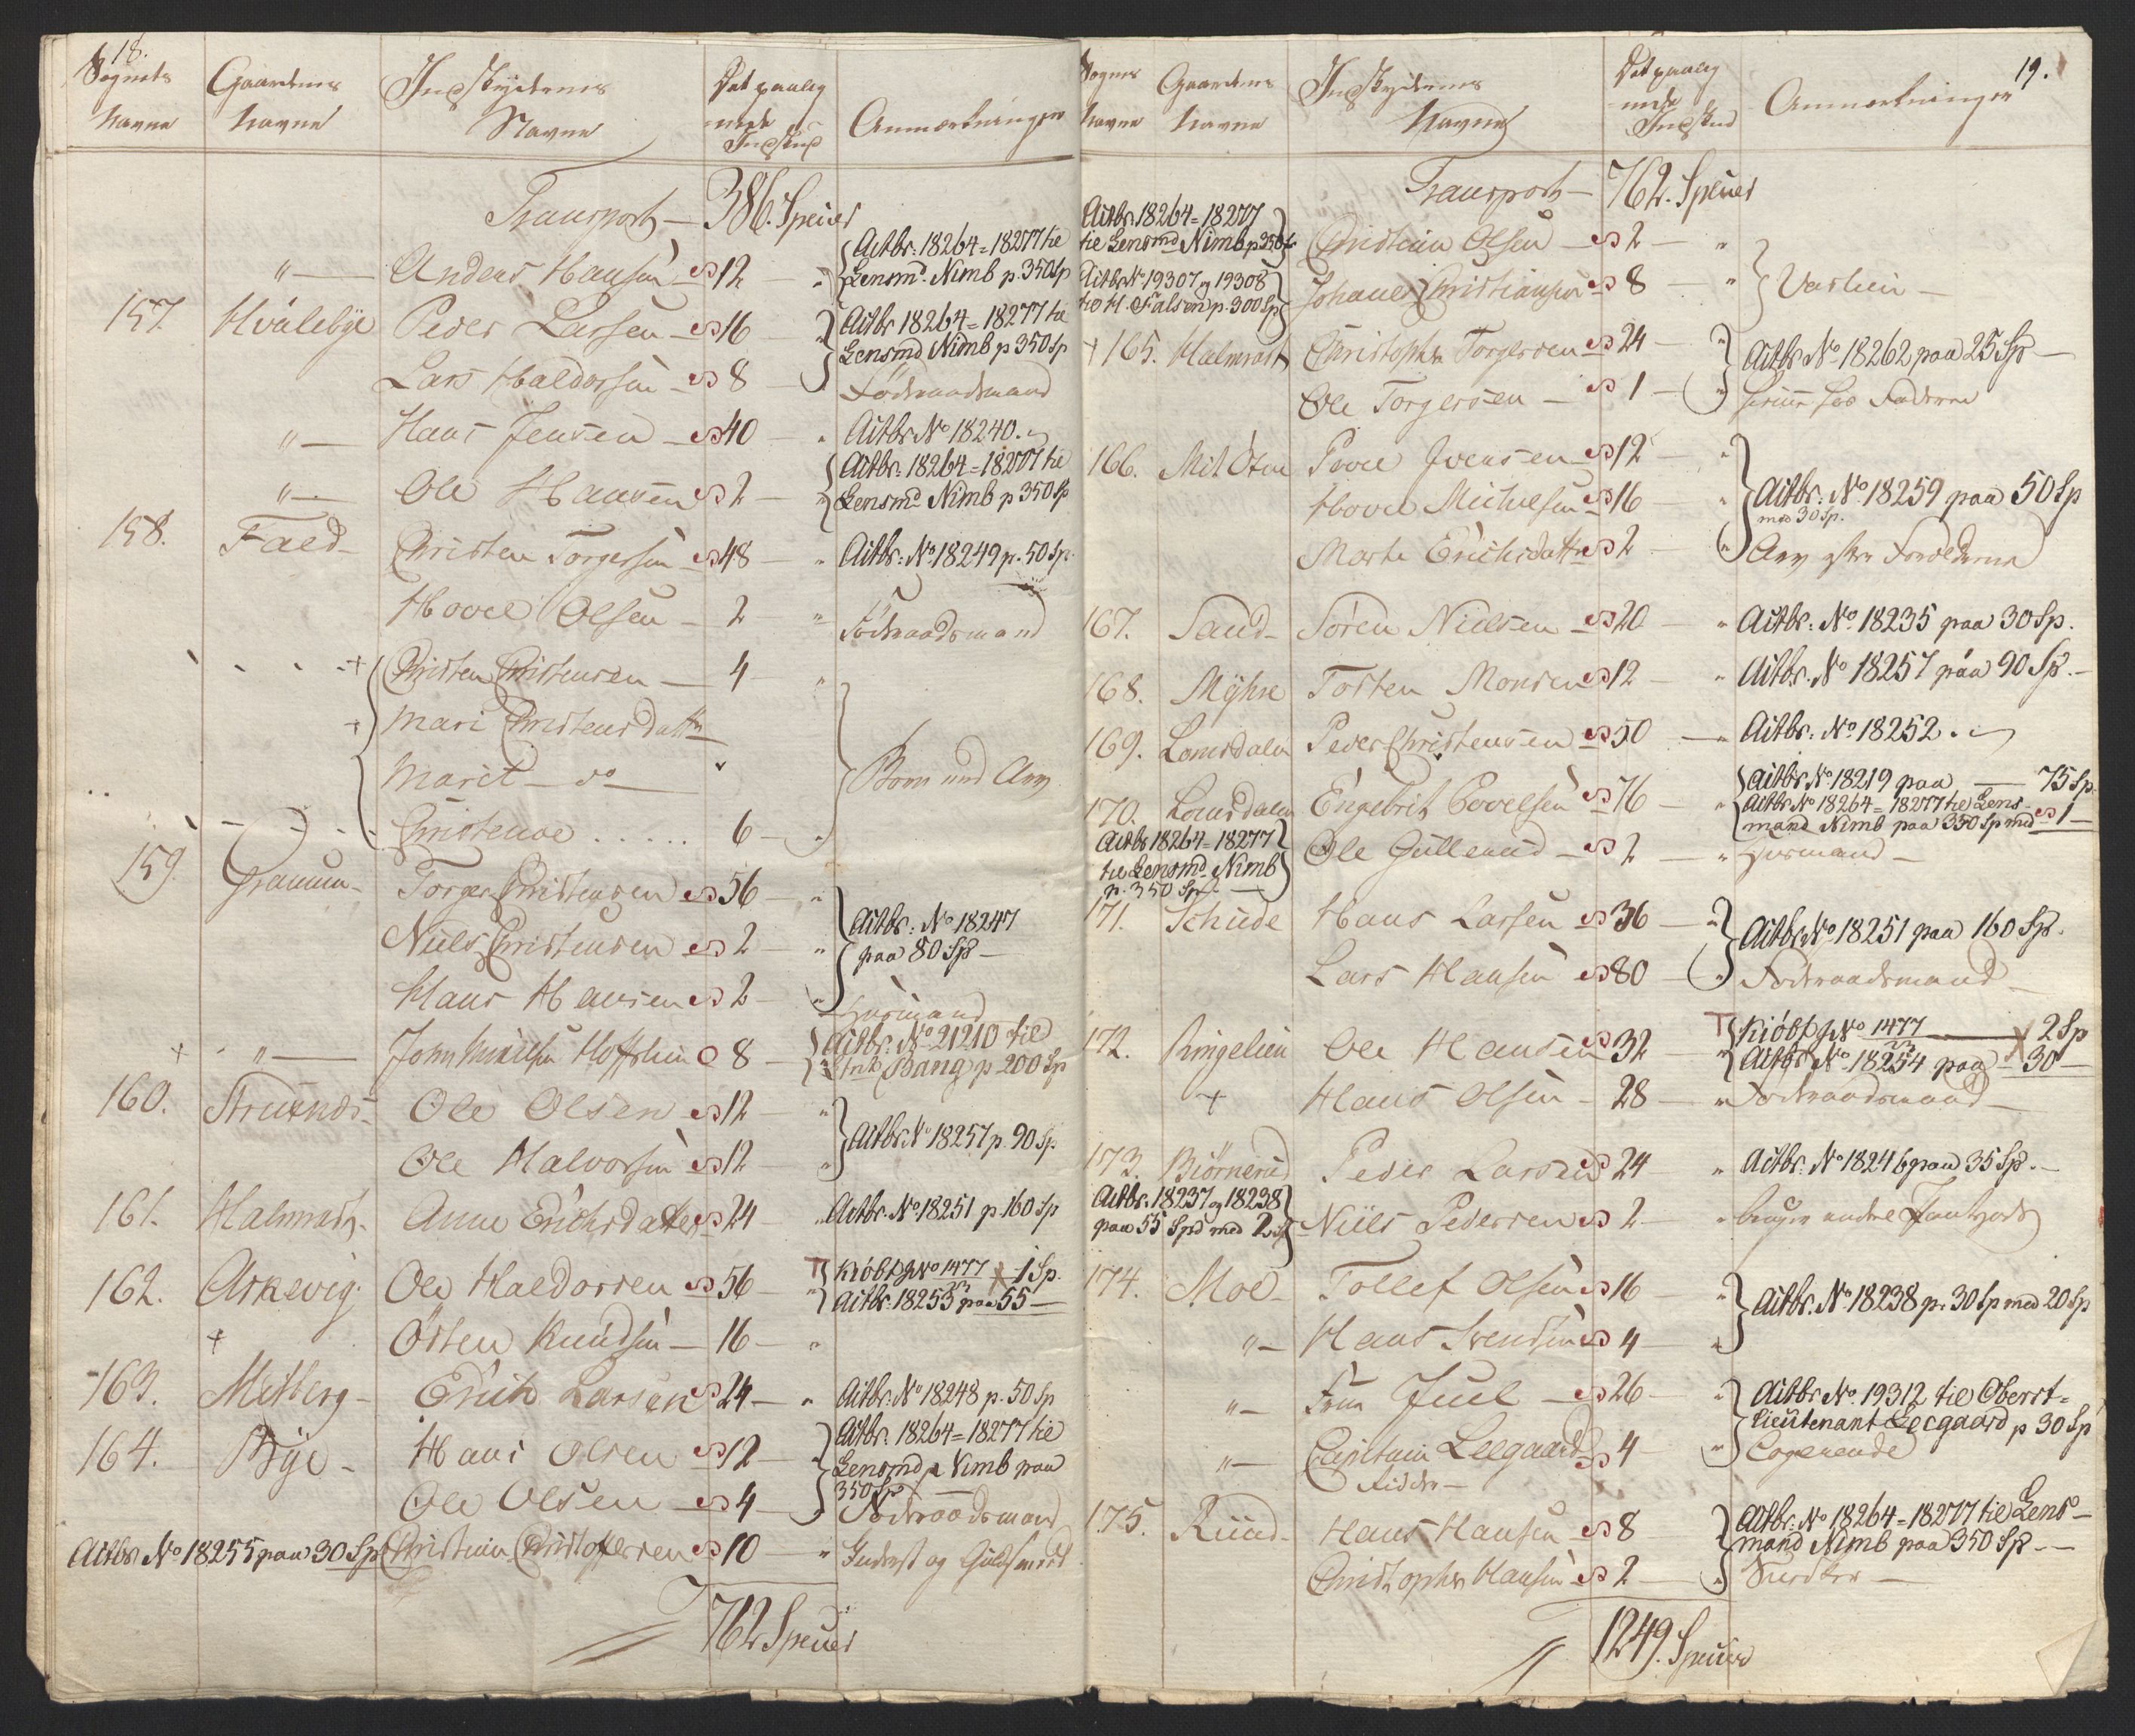 18.
Sognets Navne
Gaardenes Navne
Indskydernes Navne
Det paalagte Indskud
Anmærkninger
Transport — 386. Specier
" — Anders Hansen — 12 — " Actbr. 18264=18277 til
Lensmd. Nimb p. 350 Sp
157. Hvalebye Peder Larsen — 16 — Actbr 18264=18277 til
Lensmd Nimb p 350 Sp
Lars Haldorsen — 8 — Föderaadsmand
" — Hans Jensen — 40 — " Actbr No 18240.
" — Ole Hansen 2 — Actbr. 18264=18277 til
Lensmd Nimb p 350 Sp
158. Faed — Christen Torgersen — 48 — " Actbr: No 18249 p. 50 Sp.
Hovel Olsen — 2 — " Föderaadsmand
+ Christen Christensen — 4 — "
+ Mari Christensdatter
Marit — do — "
Christence ..... 6 — "
Børn med Arv
159. Gramm Torger Christensen 56 — "
Niels Christensen 2 — " Actbr: No 18247
paa 80 Sp —
Hans Hansen 2 — " Huusmand
+ " — John Hofslund 8 — Actbr: No 21210 til
Bang p 200 Sp
160. Struxnes — Ole Olsen — 12 — "
Ole Halvorsen 12 — " Actbr No 18257 p. 90 Sp.
161. Halmrast. Anne Erichsdatter 24 — " Actbr. No 18251 p 160 Sp
162. Askevig. Ole Haldorsen 56 — T Kiöbt No 1477 X 1 Sp.
Actbr. 18253 paa 55 —
+ Östen Knudsen — 16 — "
163. Metberg — Erich Larsen 24 — " Actbr. No 18248 p. 50 Sp
164. Bye — Hans Olsen 12 — Actbr. 18264=18277 til
Lensmd Nimb paa
350 Sp
Ole Olsen — 4 — Föderaadsmand
Actbr No 18255 paa 30 Sp Christian Christoffersen 10 — " Inderst og Guldsmed
762 Specier
19.
Sognes Navne
Gaardens Navne
Indskydernes Navne
Det paalagte Indskud
Anmærkninger
Transport — 762. Specier
Actbr. 18264=18277
til Lensmd Nimb p 350 Sp. Christian Olsen — 2 — "
Actbr No 19307 og 19308
til H. Falsen p. 300 Sp Johannes Christiansen 8 — " Varlien —
+ 165. Halmrast Christopher Torgersen 24 — " Actbr No 18262 paa 25 Sp —
Ole Torgersen — 1 — " hos Faderen
166. Mit Öden Povel Iversen 12 — "
Hovel Michelsen 16 — " Actbr: No 18259 paa 50 Sp
med 30 Sp.
Marte Erichsdatter 2 — " Arv efter Forældrene
167. Sand — Sören Nielsen — 20 — " Actbr: No 18235 paa 30 Sp.
168. Myhre Tosten Monsen 12 — " Actbr. No 18257 paa 90 Sp. —
169. Lomsdalen Peder Christensen 50 — " Actbr: No 18252.
170. Lomsdalen Engebrit Povelsen 76 — " Actbr No 18219 paa — 75 Sp.
Actbr No 18264=18277 til Lens-
mand Nimb paa 350 Sp med 1 —
Actbr 18264=18277
til Lensmd. Nimb
p. 350 Sp. — Ole Gullerud — 2 — " Huusmand —
171. Schude Hans Larsen 36 — " Actbr No 18251 paa 160 Sp.
Lars Hansen 80 — " Föderaadsmand
172. Ringelien Ole Hansen 32 — T Kiöbt No 1477 — X 2 Sp
Actbr No 18254 paa — 30 —
+ Hans Olsen — 28 — " Föderaadsmand —
173. Biörnerud Peder Larsen 24 — " Actbr: No 18246 paa 35 Sp. —
Actbr: 18237 og 18238
paa 55 Spd med 2 Sp Niels Pedersen 2 — " bruger andre
174. Moe — Tollef Olsen 16 — "
" — Hans Svendsen 4 — " Actbr. No 18238 p. 30 Sp med 20 Sp
" — Frue Juel — 26 — " Actbr No 19312 til Oberst-
lieutenant Leegaard p 30 Sp
" — Capitain Leegaard 4 — " Logerende
175. Ruud — Hans Hansen 8 Actbr: No 18264=18277 til Lens-
mand Nimb paa 350 Sp —
Christopher Hansen 2 — "
1249. Specier